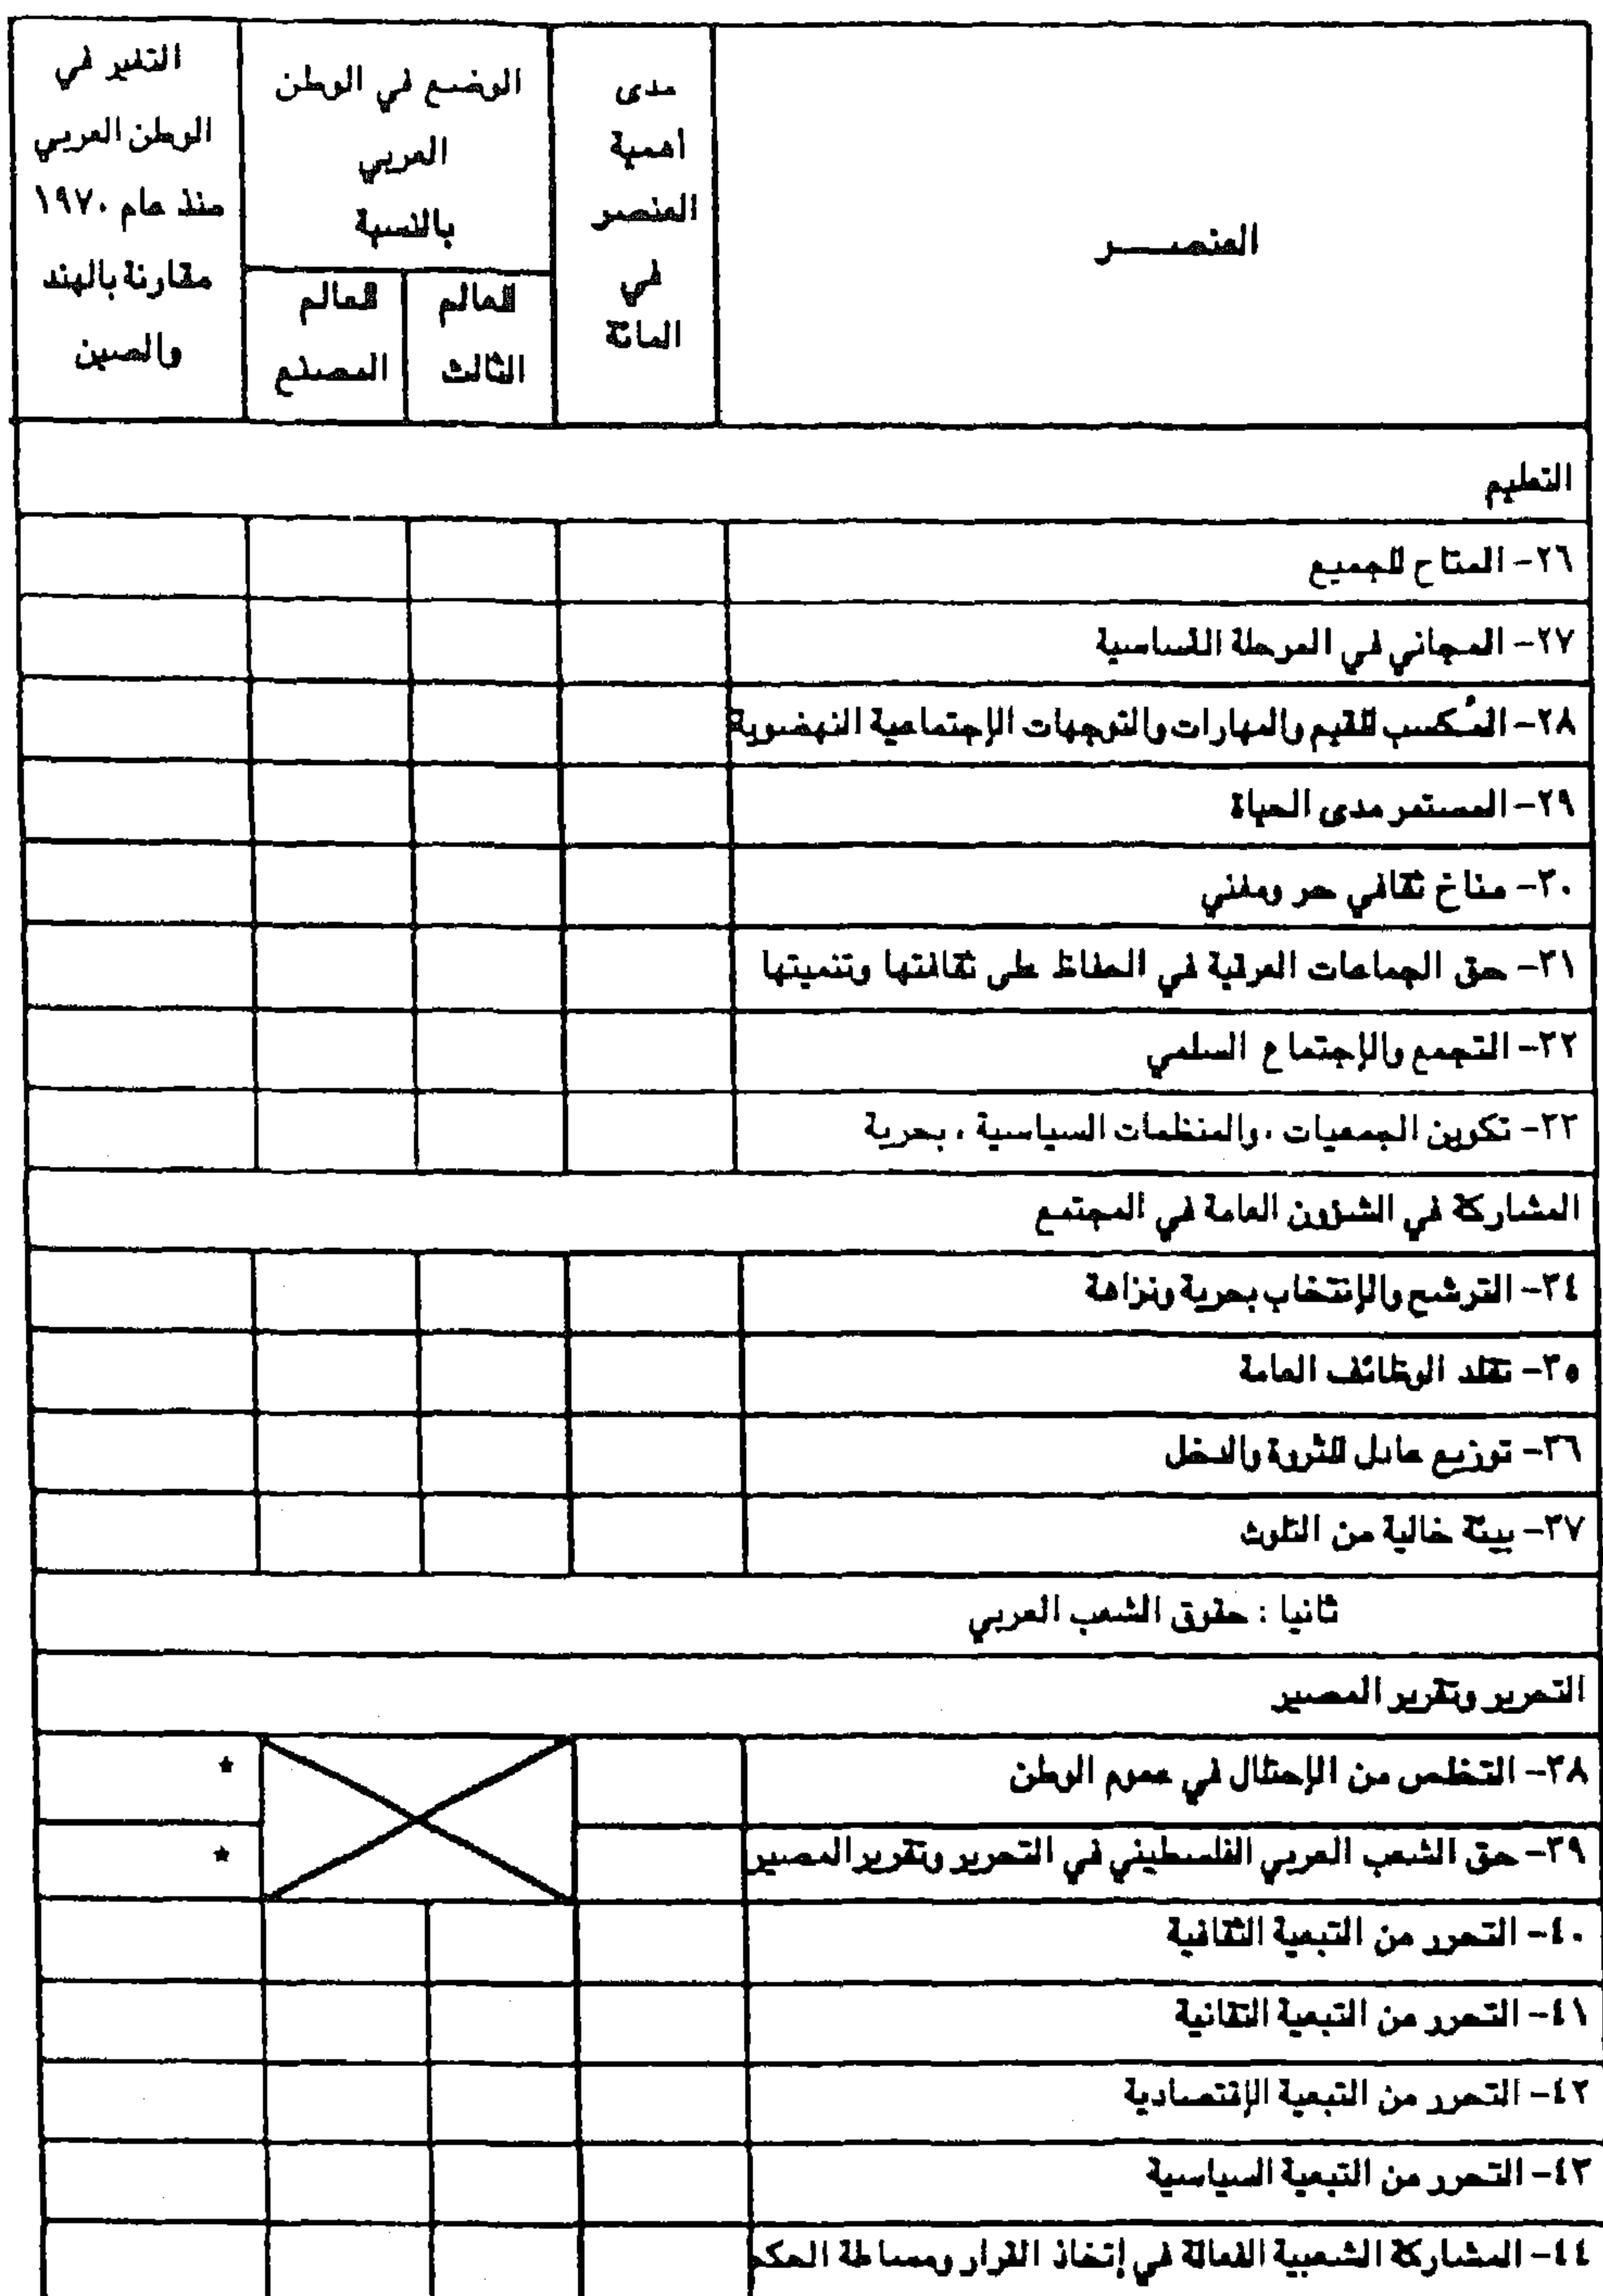 العنصـــر
مدى
أهمية
العنصر
في
المائة
الوضع في الوطن
العربي
بالنسبة
للعالم
الثالث
للعالم
المصنع
التغير في
الوطن العربي
منذ عام ١٩٧٠
مقارنة بالهند
والصين
التعليم
٢٦- المتاح للجميع
٢٧- المجاني في المرحلة الأساسية
٢٨- المُكسب للقيم والمهارات والتوجهات الإجتماعية النهضوية
٢٩- المستمر مدى الحياة
٣٠- مناخ ثقافي حر ومغني
٣١- حق الجماعات العرقية في الحفاظ على ثقافتها وتنميتها
٣٢- التجمع والإجتماع السلمي
٣٣- تكوين الجمعيات ، والمنظمات السياسية ، بحرية
المشاركة في الشؤون العامة في المجتمع
٣٤- الترشح والإنتخاب بحرية ونزاهة
٣٥- تقلد الوظائف العامة
٣٦- توزيع عادل للثروة والدخل
٣٧- بيئة خالية من التلوث
ثانيا : حقوق الشعب العربي
التحرير وتقرير المصير
٣٨- التخلص من الإحتلال في عموم الوطن
*
٣٩- حق الشعب العربي الفلسطيني في التحرير وتقرير المصير
*
٤٠- التحرر من التبعية الثقافية
٤١- التحرر من التبعية التقانية
٤٢- التحرر من التبعية الإقتصادية
٤٣- التحرر من التبعية السياسية
٤٤- المشاركة الشعبية الفعالة في إتخاذ القرار ومساءلة الحكم